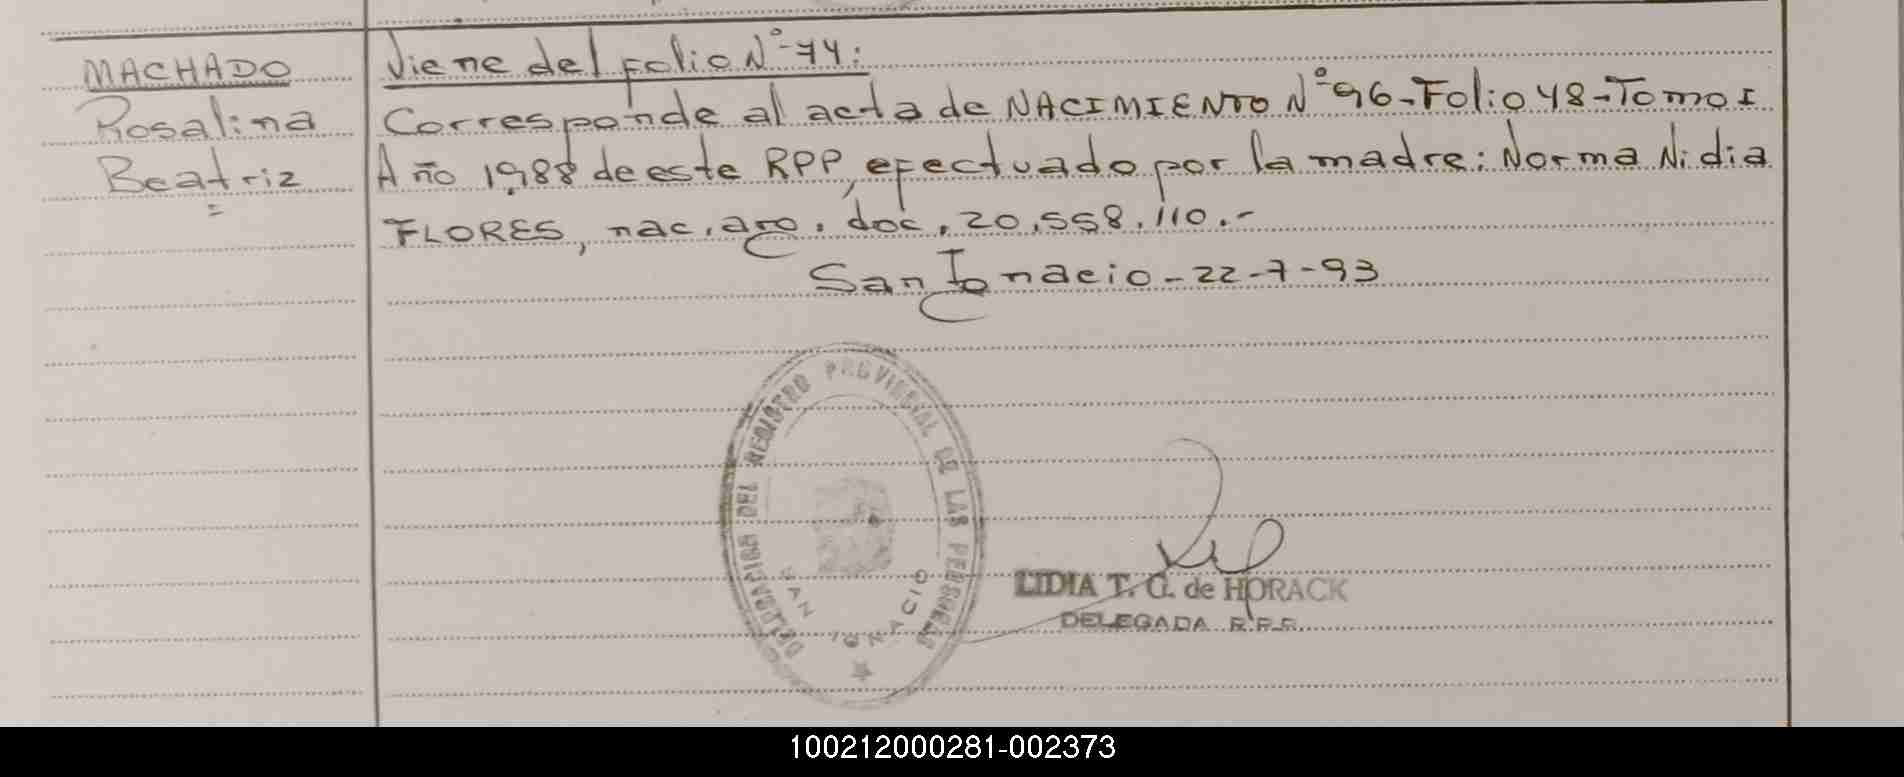 MACHADO
Rosalina
Beatriz
=
Viene del folio Nº 74:
Corresponde al acta de NACIMIENTO Nº 96-Folio 48-Tomo I
Año 1988 de este RPP, efectuado por la madre: Norma Nidia
FLORES, nac. arg. doc. 20.558.110.-
San Ignacio-22-7-93
DELEGACION DEL REGISTRO PROVINCIAL DE LAS PERSONAS
SAN IGNACIO
LIDIA T. G. de HORACK
DELEGADA R.P.P.
100212000281-002373